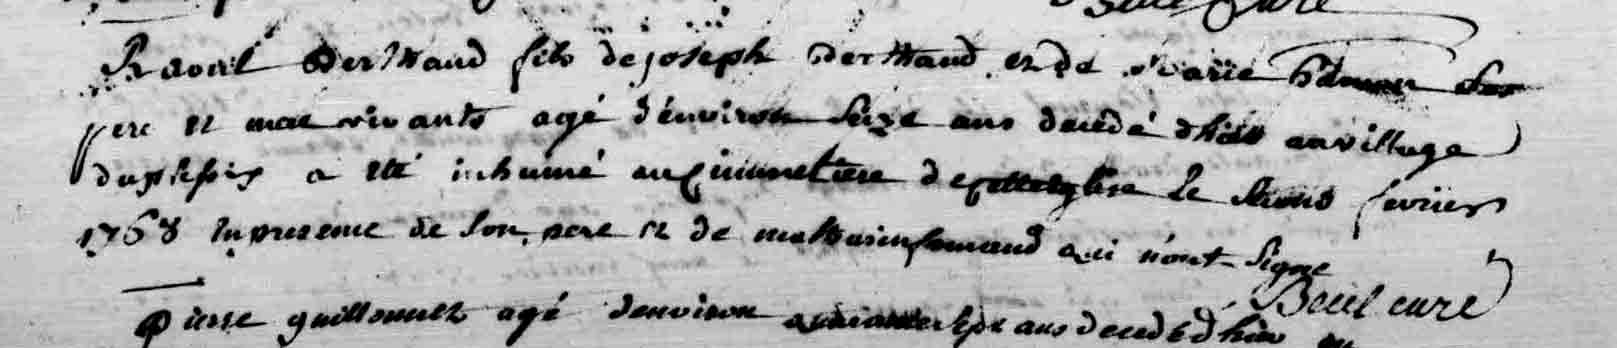 Beuil Curé
Bertrand fils de joseph Bertrand et de marie
pere et mere vivants agé d'environ seize ans decedé d'hier au village
duplessis a eté inhumé au cimmetiere de cette eglise le second fevrier
1768 en presence de son pere et de mathurin qui n'ont signé
Beuil curé
Pierre guillonnet agé d'environ sept ans decedé d'hier au